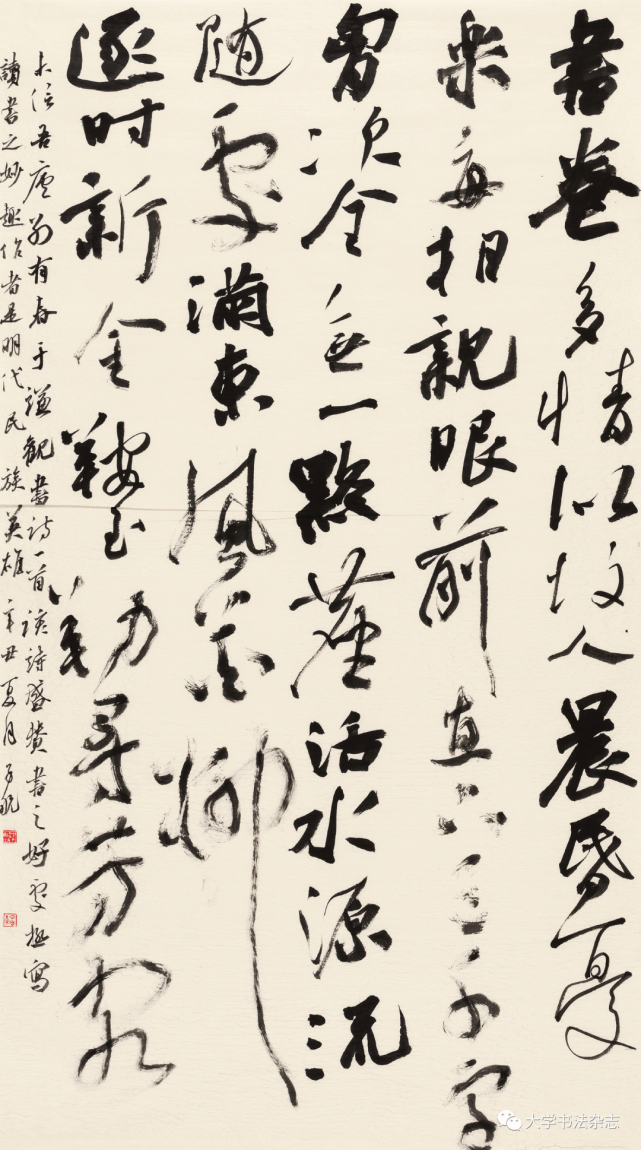 書卷多情似故人晨昏憂
樂每相親眼前直下三千字
胷次全無一點塵活水源流
隨處滿東風花柳
逐時新金鞍玉勒尋芳客
未信吾廬別有春于謙觀書詩一首該詩盛贊書之好處極寫
讀書之妙趣作者是明代民族英雄辛丑夏月
大学书法杂志